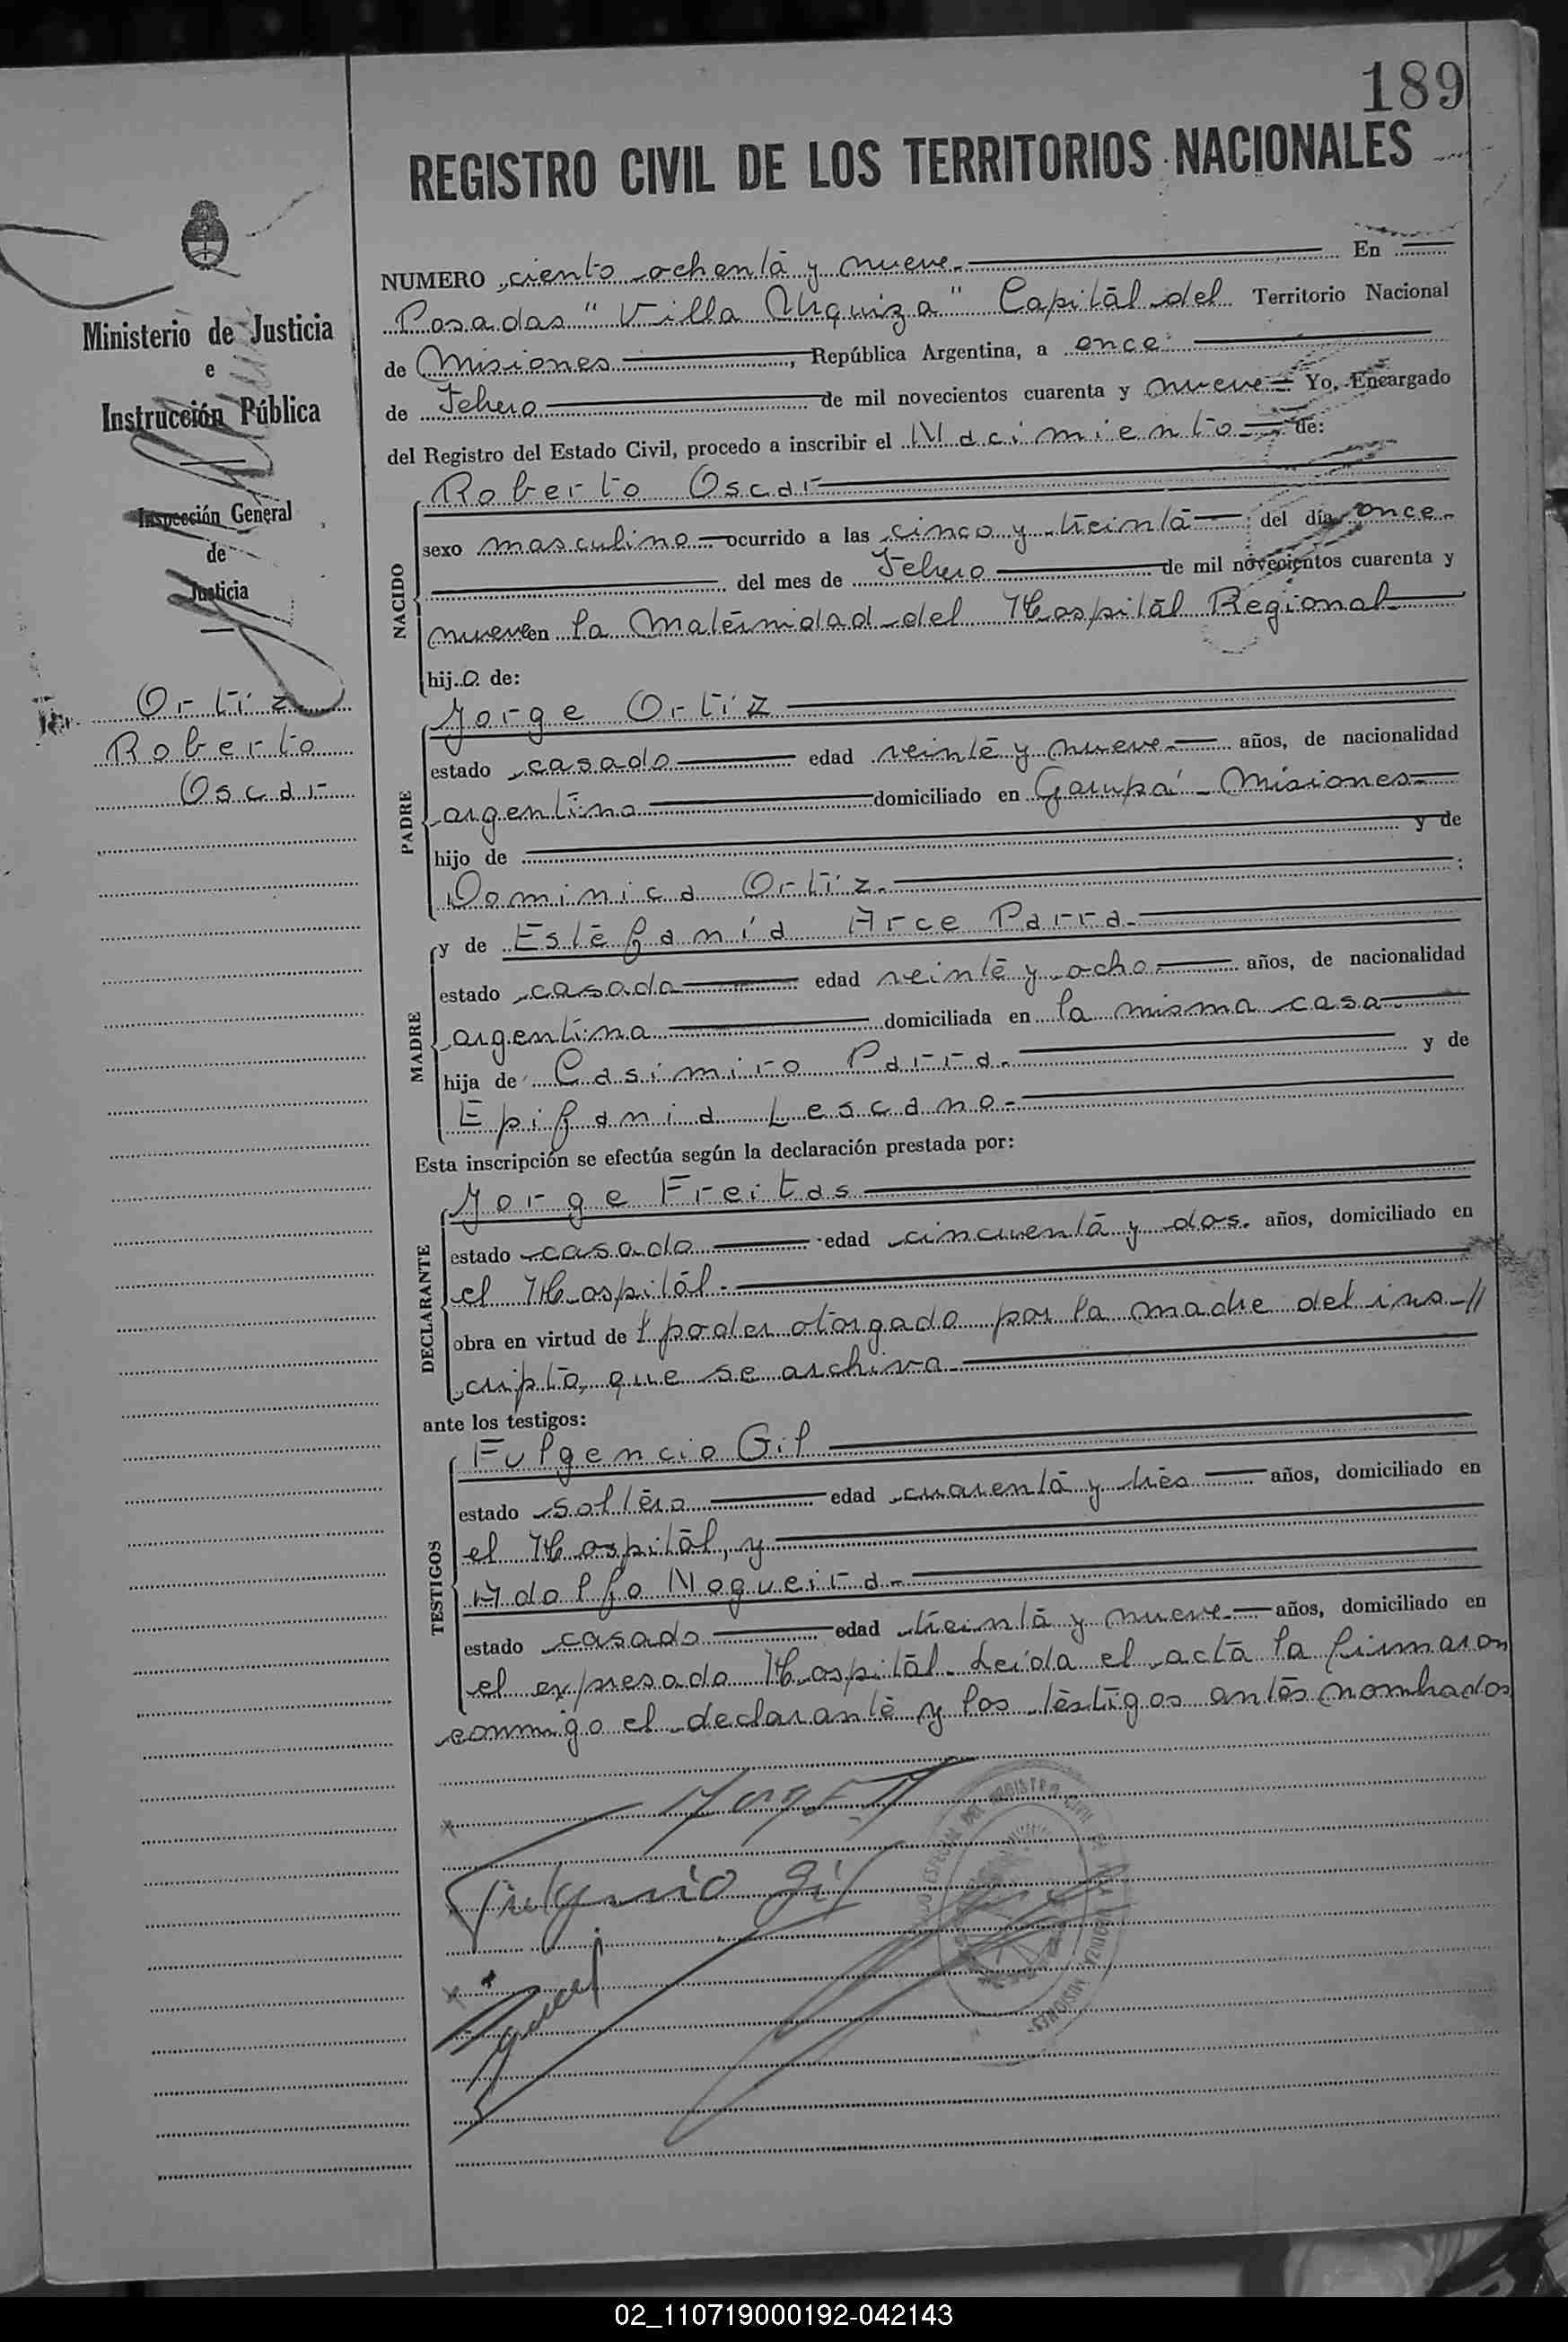 189
REGISTRO CIVIL DE LOS TERRITORIOS NACIONALES
Ministerio de Justicia
e
Instrucción Pública
Inspección General
de
Justicia
Ortiz
Roberto
Oscar
NUMERO ciento ochenta y nueve.- En
Posadas "Villa Urquiza" Capital del Territorio Nacional
de Misiones, República Argentina, a once
de Febrero de mil novecientos cuarenta y nueve Yo, Encargado
del Registro del Estado Civil, procedo a inscribir el Nacimiento de:
NACIDO
Roberto Oscar
sexo masculino ocurrido a las cinco y treinta del día once-
del mes de Febrero de mil novecientos cuarenta y
nueve en la Maternidad del Hospital Regional-
hijo de:
PADRE
Jorge Ortiz
estado casado edad veinte y nueve años, de nacionalidad
argentina domiciliado en Garupá - Misiones-
hijo de y de
Dominica Ortiz.- ;
MADRE
y de Estefanía Arce Parra-
estado casada edad veinte y ocho años, de nacionalidad
argentina domiciliada en la misma casa
hija de Casimiro Parra.- y de
Epifania Lescano-
Esta inscripción se efectúa según la declaración prestada por:
DECLARANTE
Jorge Freitas
estado casado edad cincuenta y dos. años, domiciliado en
el Hospital.-
obra en virtud de l poder otorgado por la madre del ins-//
cripto, que se archiva
ante los testigos:
TESTIGOS
Fulgencio Gil
estado soltero edad cuarenta y tres años, domiciliado en
el Hospital, y
Adolfo Nogueira-
estado casado edad treinta y nueve años, domiciliado en
el expresado Hospital. Leída el acta la firmaron
conmigo el declarante y los testigos antes nombrados
Fulgencio Gil
02_110719000192-042143